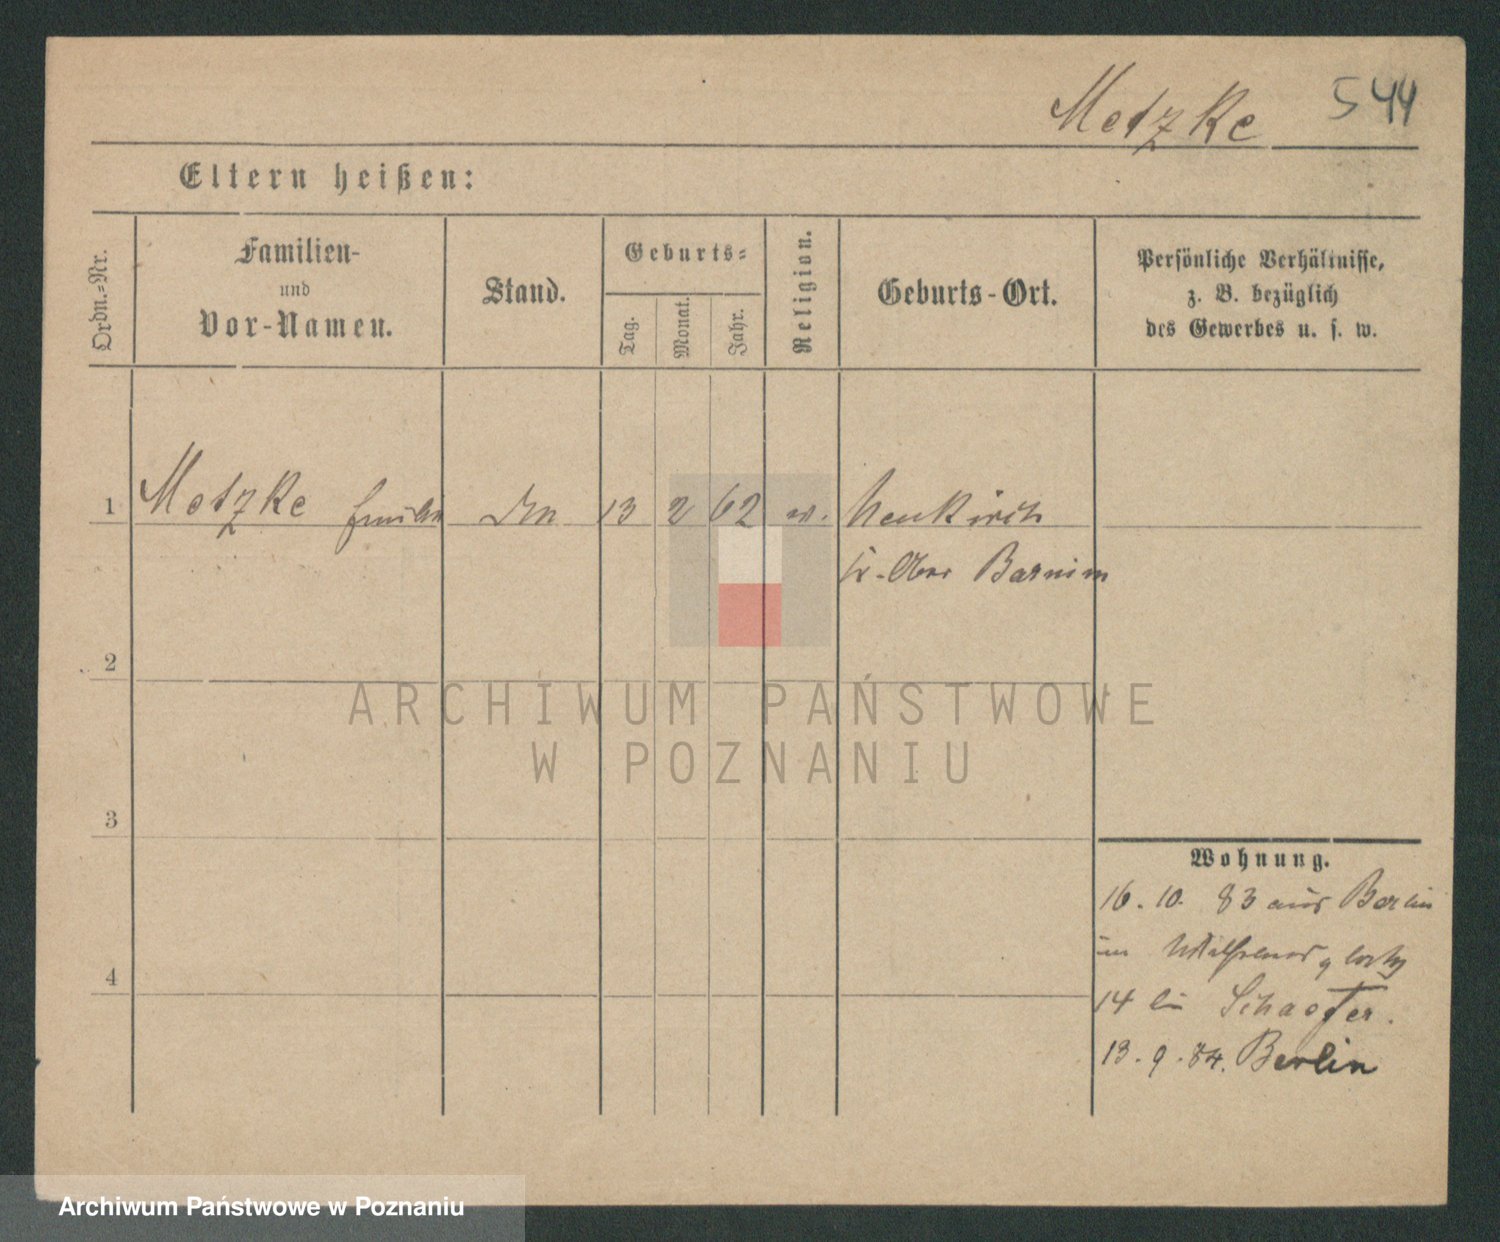 Metzke 544
Eltern heißen:
Ordn.-Nr.
Familien-
und
Vor-Namen.
Stand.
Geburts-
Tag.
Monat.
Jahr.
Religion.
Geburts-Ort.
Persönliche Verhältnisse,
z. B. bezüglich
des Gewerbes u. s. w.
1 Metzke Emilie 13 2 62 Neukirch
Kr. Ober Barnim
2
3
4
Wohnung.
16. 10. 83 aus Berlin
14 bei Schaefer.
13. 9. 84. Berlin
ARCHIWUM PAŃSTWOWE
W POZNANIU
Archiwum Państwowe w Poznaniu